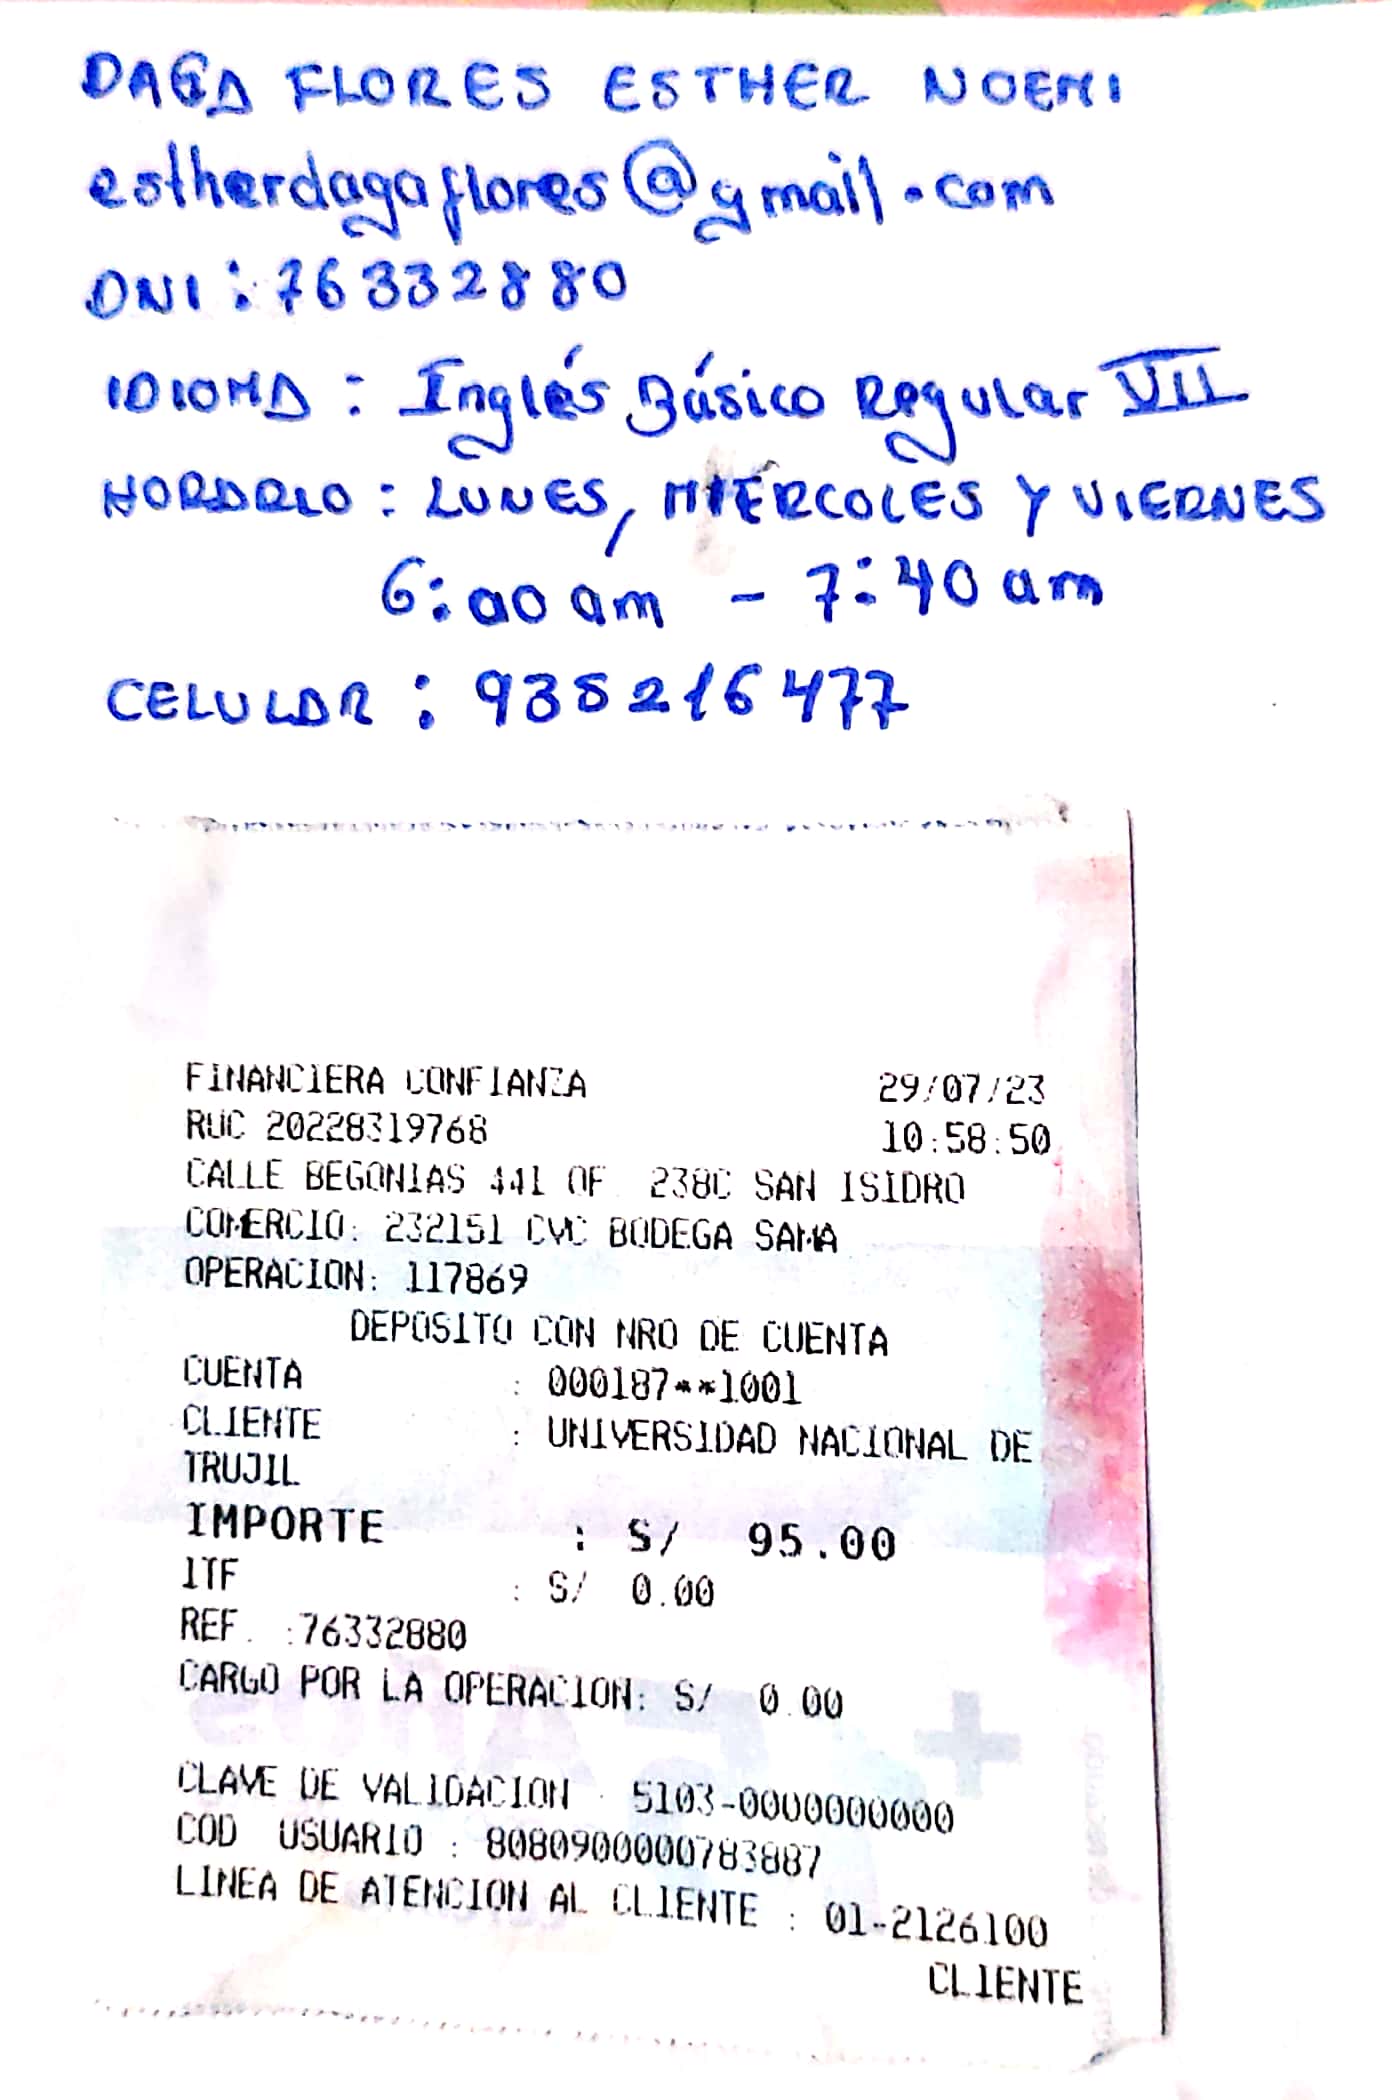 DAGA FLORES ESTHER NOEMI
estherdagaflores@gmail.com
DNI: 76332880
IDIOMA: Inglés Básico Regular VII
HORARIO: LUNES, MIÉRCOLES Y VIERNES
6:00 am - 7:40 am
CELULAR: 938216477
FINANCIERA CONFIANZA 29/07/23
RUC 20228319768 10:58:50
CALLE BEGONIAS 441 OF 238C SAN ISIDRO
COMERCIO: 232151 CVC BODEGA SAMA
OPERACION: 117869
DEPOSITO CON NRO DE CUENTA
CUENTA : 000187**1001
CLIENTE : UNIVERSIDAD NACIONAL DE
TRUJIL
IMPORTE : S/ 95.00
ITF : S/ 0.00
REF. :76332880
CARGO POR LA OPERACION: S/ 0.00
CLAVE DE VALIDACION : 5103-0000000000
COD USUARIO : 8080900000783887
LINEA DE ATENCION AL CLIENTE : 01-2126100
CLIENTE